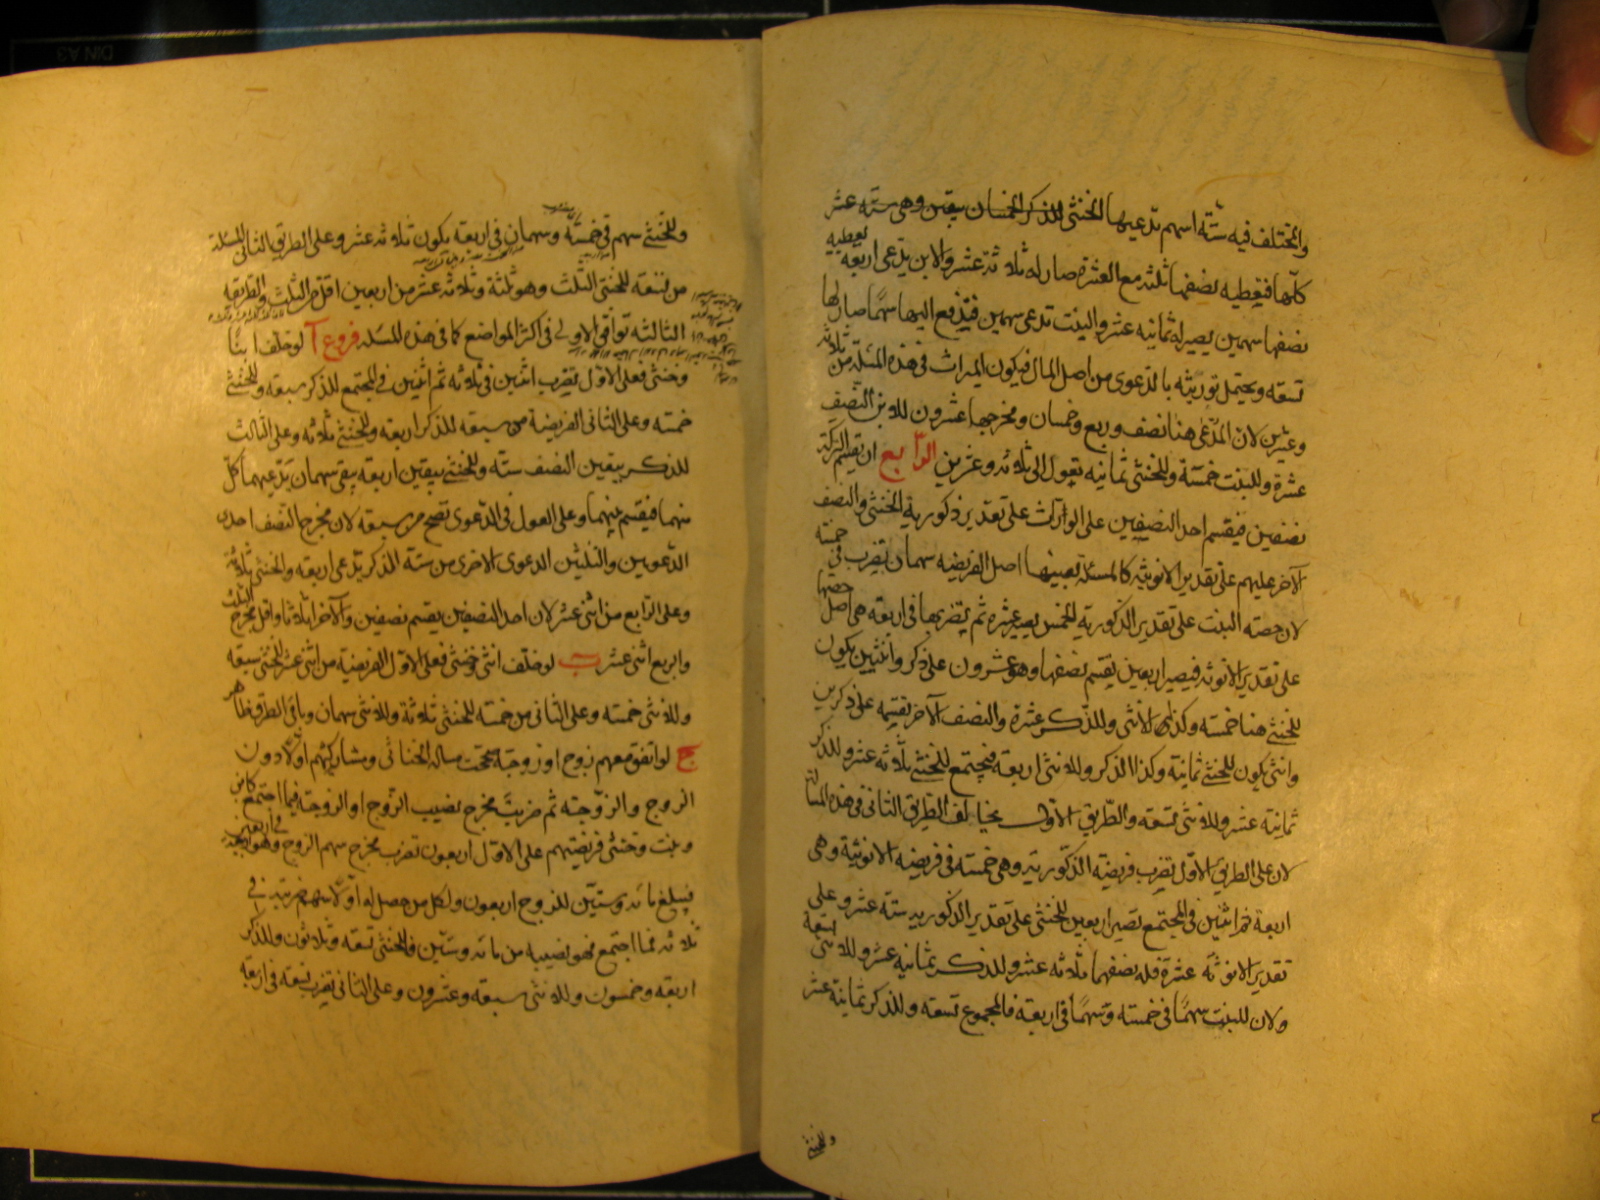 والمختلف فيه ستة اسهم تدعيها الخنثى للذكر الخمسان بيقين وهى ستة عشر
كلها فتعطيه نصفها ثلثة مع العشرة صار له ثلاثة عشر والابن يدعى اربعة يعطيه
نصفها سهمين يصير له ثمانية عشر والبنت تدعى سهمين فيدفع اليها سهما صار لها
تسعة ويحتمل توريثه بالدعوى من اصل المال فيكون الميراث فى هذه المسئلة من ثلاثة
وعشرين لان المدعى هنا نصف وربع وخمسان ومخرجها عشرون للابن النصف
عشرة وللبنت خمسة وللخنثى ثمانية تعول الى ثلاثة وعشرين الرابع ان تقسم التركة
نصفين فيقسم احد النصفين على الوارث على تقدير ذكورية الخنثى والنصف
الآخر عليهم على تقدير الانوثية كالمسئلة بعينها اصل الفريضة سهمان يضرب فى خمسة
لان حصة البنت على تقدير الذكورية الخمس يصير عشرة ثم يضربها فى اربعة هى اصل حصتها
على تقدير الانوثة فيصير اربعين يقسم نصفها وهو عشرون على ذكر وانثيين يكون
للخنثى هنا خمسة وكذلك الانثى وللذكر عشرة والنصف الآخر يقسم على ذكرين
وانثى يكون للخنثى ثمانية وكذا الذكر وللانثى اربعة فيجتمع للخنثى ثلاثة عشر وللذكر
ثمانية عشر وللانثى تسعة والطريق الاول يخالف الطريق الثانى فى هذه المسالة
لان على الطريق الاول يضرب فريضة الذكورية وهى خمسة فى فريضة الانوثية وهى
اربعة ثم اثنين فى المجتمع تصير اربعين للخنثى على تقدير الذكورية ستة عشر وعلى
تقدير الانوثة عشرة فله نصفهما ثلاثة عشر وللذكر ثمانية عشر وللانثى تسعة
ولان للبنت سهما فى خمسة وسهما فى اربعة فالمجموع تسعة وللذكر ثمانية عشر
وللخنثى
وللخنثى سهم فى خمسة وسهمان فى اربعة يكون ثلاثة عشر وعلى الطريق الثانى المسئلة
من تسعة للخنثى الثلث وهو ثلثة وثلاثة عشر من اربعين اقل من الثلث والطريقة
الثالثة توافق الاولى فى اكثر المواضع كما فى هذه المسئلة فروع آ لو خلف ابنا
وخنثى فعلى الاول يضرب اثنين فى ثلاثة ثم اثنين فى المجتمع للذكر سبعة وللخنثى
خمسة وعلى الثانى الفريضة من سبعة للذكر اربعة وللخنثى ثلاثة وعلى الثالث
للذكر بيقين النصف ستة وللخنثى بيقين اربعة يبقى سهمان يدعيهما كل
منهما فيقسم بينهما وعلى العول فى الدعوى تصح من سبعة لان مخرج النصف احدى
الدعويين والثلثين الدعوى الاخرى من ستة الذكر يدعى اربعة والخنثى ثلاثة
وعلى الرابع من اثنى عشر لان احد النصفين يقسم نصفين والآخر اثلاثا واقل مخرج الثلث
والربع اثنى عشر ب لو خلف انثى وخنثى فعلى الاول الفريضة من اثنى عشر للخنثى سبعة
وللانثى خمسة وعلى الثانى من خمسة للخنثى ثلاثة وللانثى سهمان وباقى الطرق ظاهر
ج لو اتفق معهم زوج او زوجة صححت مسالة الخناثى ومشاركيهم اولا دون
الزوج والزوجة ثم ضربت مخرج نصيب الزوج او الزوجة فيما اجتمع كابن
وبنت وخنثى فريضتهم على الاول اربعون تضرب مخرج سهم الزوج وهو اربعة
فيبلغ مائة وستين للزوج اربعون ولكل من حصل له اولا سهم ضربته فى
ثلاثة فما اجتمع فهو نصيبه من مائة وستين فالخنثى تسعة وثلاثون وللذكر
اربعة وخمسون وللانثى سبعة وعشرون وعلى الثانى تضرب تسعة فى اربعة